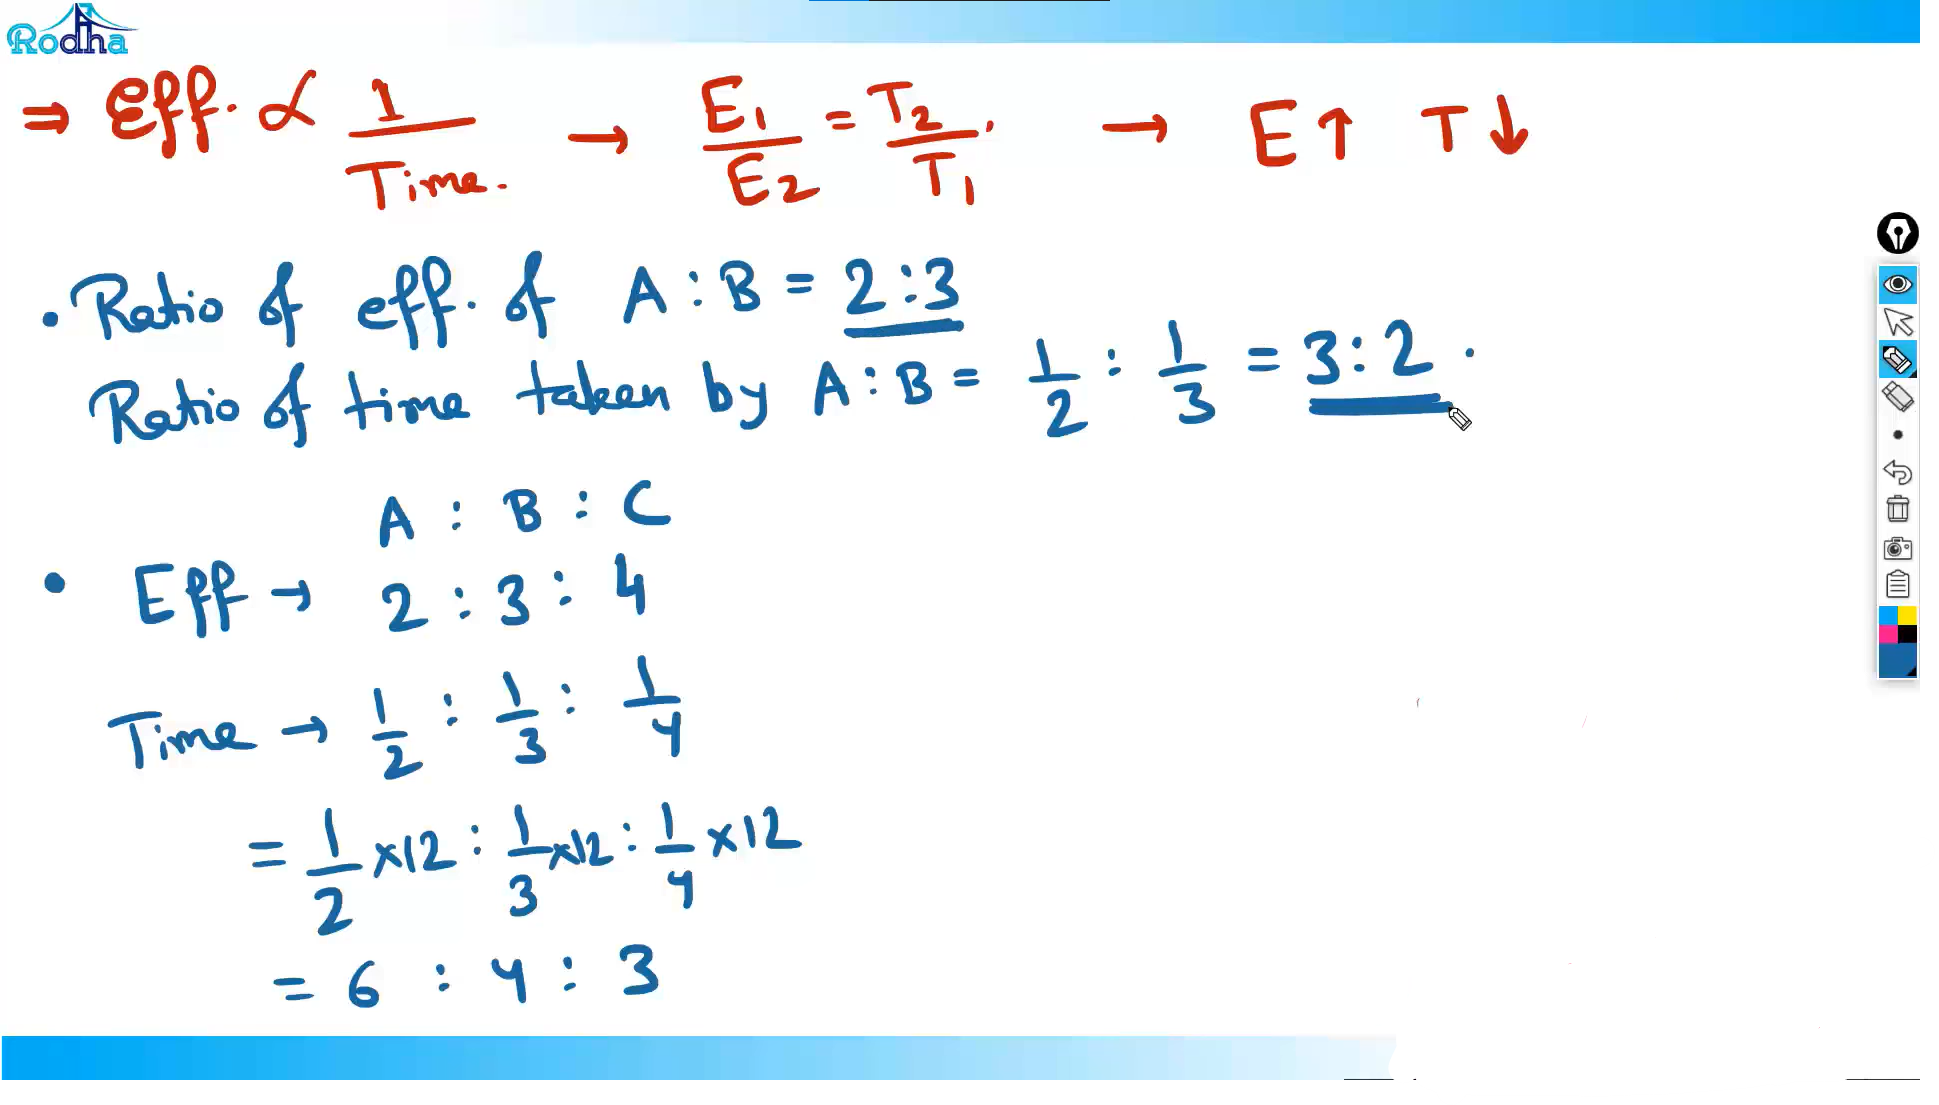 Rodha
⇒ Eff. ∝ 1/Time. → E1/E2 = T2/T1. → E↑ T↓
• Ratio of eff. of A : B = 2 : 3
Ratio of time taken by A : B = 1/2 : 1/3 = 3 : 2 .
A : B : C
• Eff → 2 : 3 : 4
Time → 1/2 : 1/3 : 1/4
= 1/2 ×12 : 1/3 ×12 : 1/4 ×12
= 6 : 4 : 3